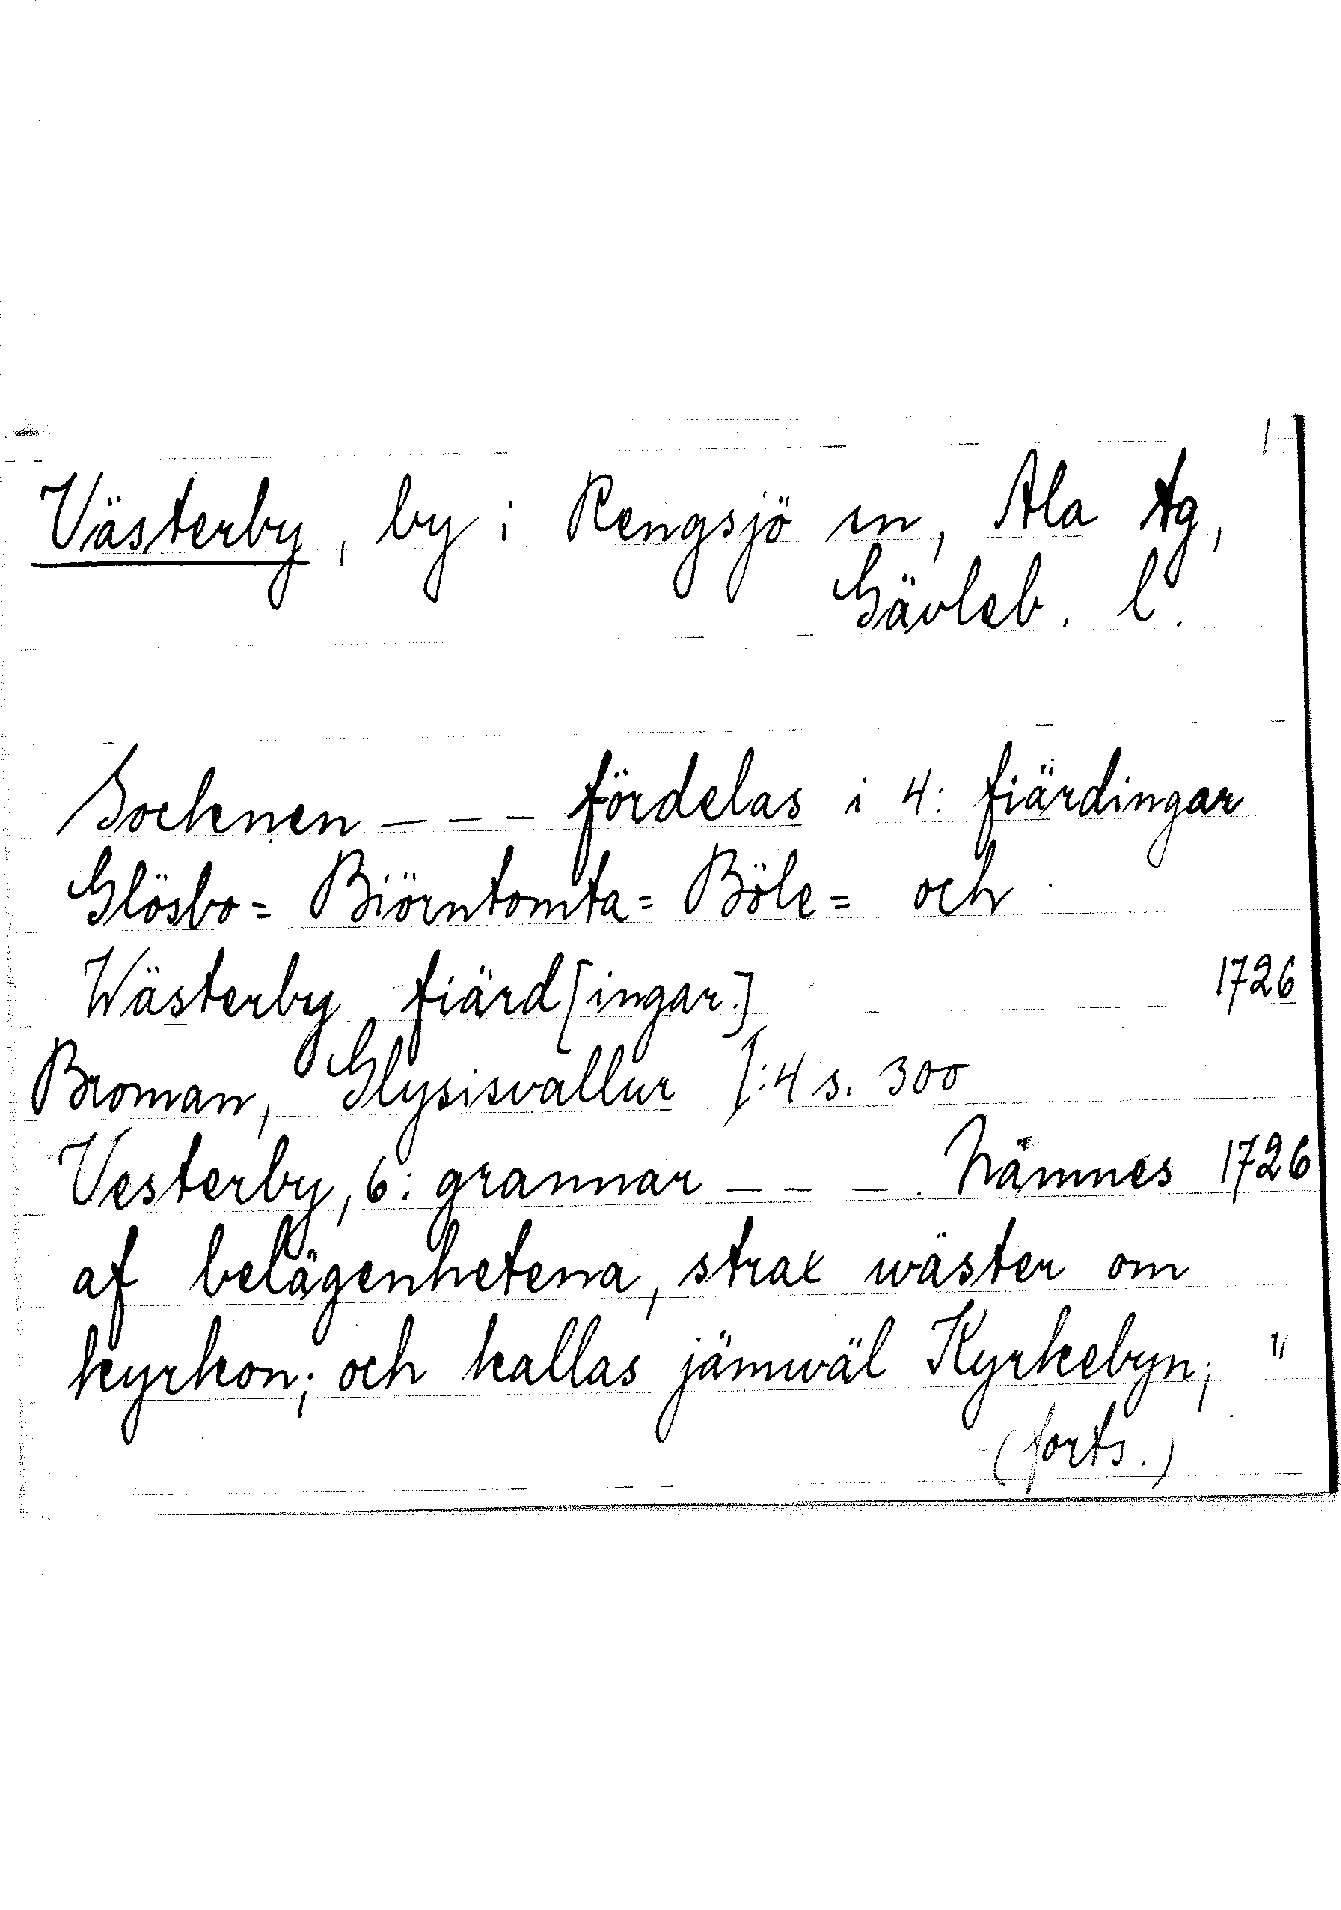 1
Västerby, by i Rengsjö sn, Ala tg,
Gävleb. l.
Socknen - - - fördelas i 4: fiärdingar
Glösbo= Biörntomta= Böle= och
Wästerby fiärd[ingar.] 1726
Broman, Glysisvallur I:4 s. 300
Vesterby, 6: grannar - - -. Nämnes 1726
af belägenhetena, strax wäster om
kyrkon; och kallas jämwäl Kyrkebyn; "
(forts.)